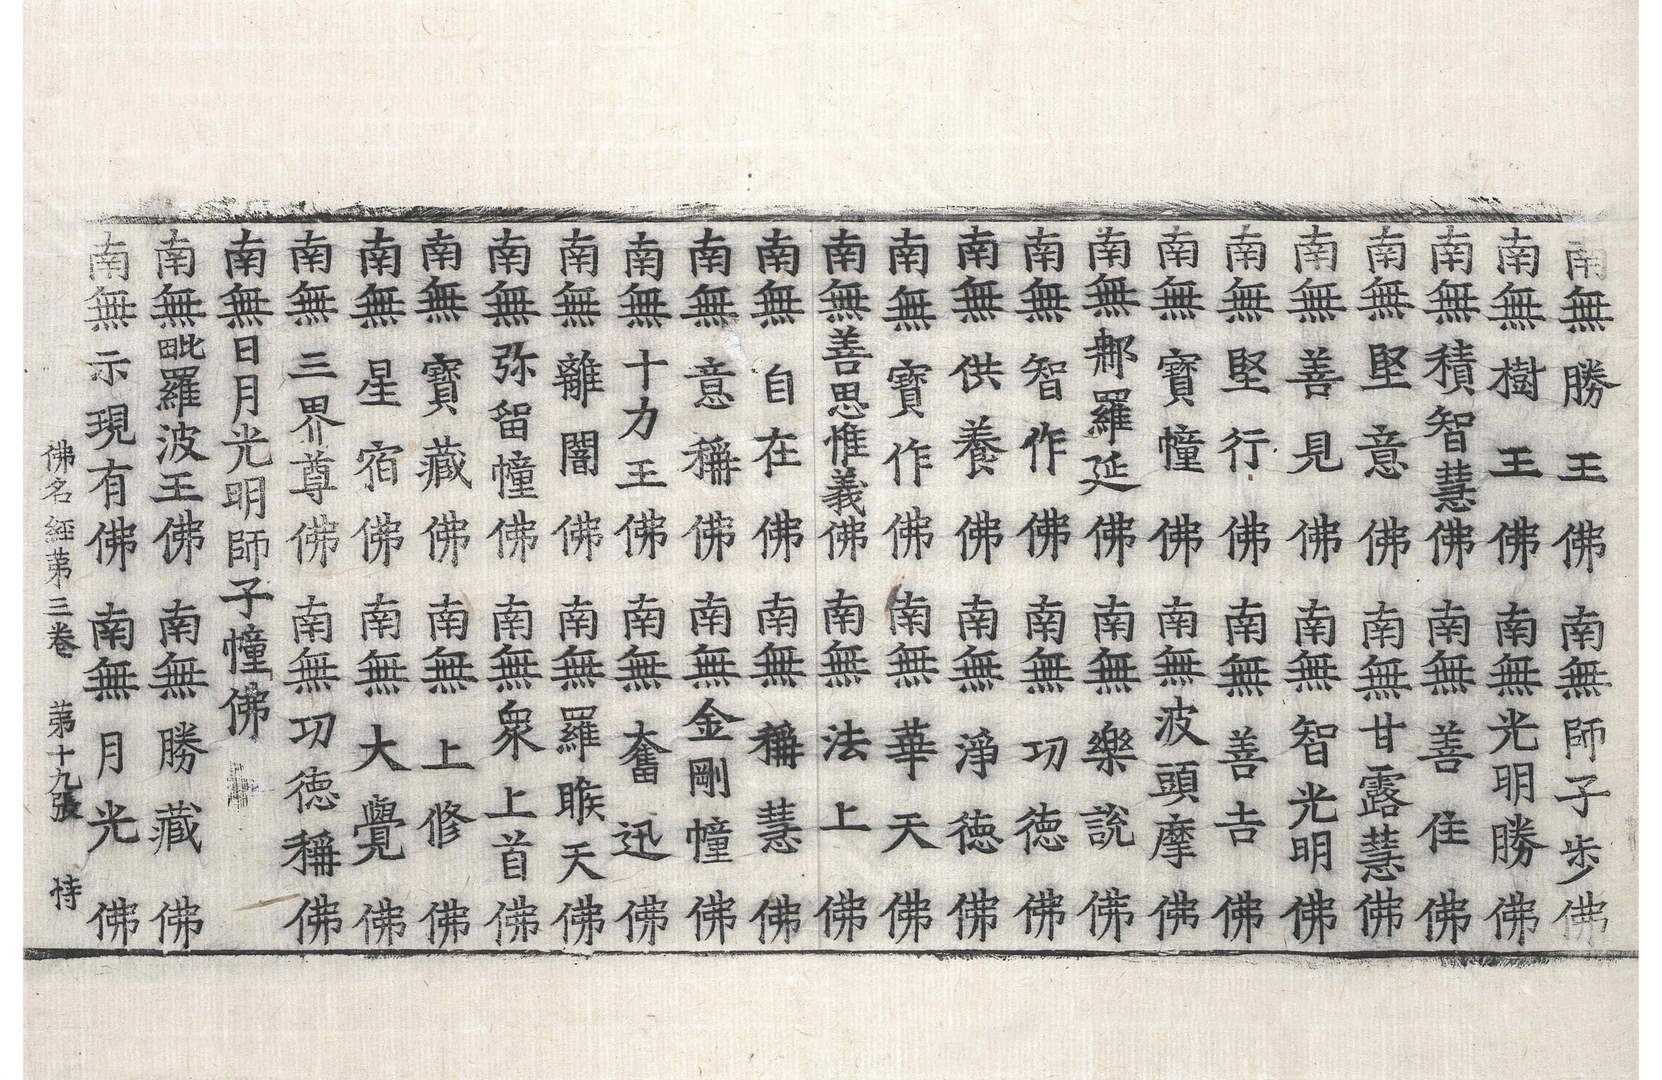 南無勝王佛 南無師子步佛
南無樹王佛 南無光明勝佛
南無積智慧佛 南無善住佛
南無堅意佛 南無甘露慧佛
南無善見佛 南無智光明佛
南無堅行佛 南無善吉佛
南無寶幢佛 南無波頭摩佛
南無郍羅延佛 南無樂說佛
南無智作佛 南無功德佛
南無供養佛 南無淨德佛
南無寶作佛 南無華天佛
南無善思惟義佛 南無法上佛
南無自在佛 南無稱慧佛
南無意稱佛 南無金剛幢佛
南無十力王佛 南無奮迅佛
南無離闇佛 南無羅睺天佛
南無弥留幢佛 南無衆上首佛
南無寶藏佛 南無上修佛
南無星宿佛 南無大覺佛
南無三界尊佛 南無功德稱佛
南無日月光明師子幢佛
南無毗羅波王佛 南無勝藏佛
南無示現有佛 南無月光佛
佛名經苐三卷 苐十九張 恃